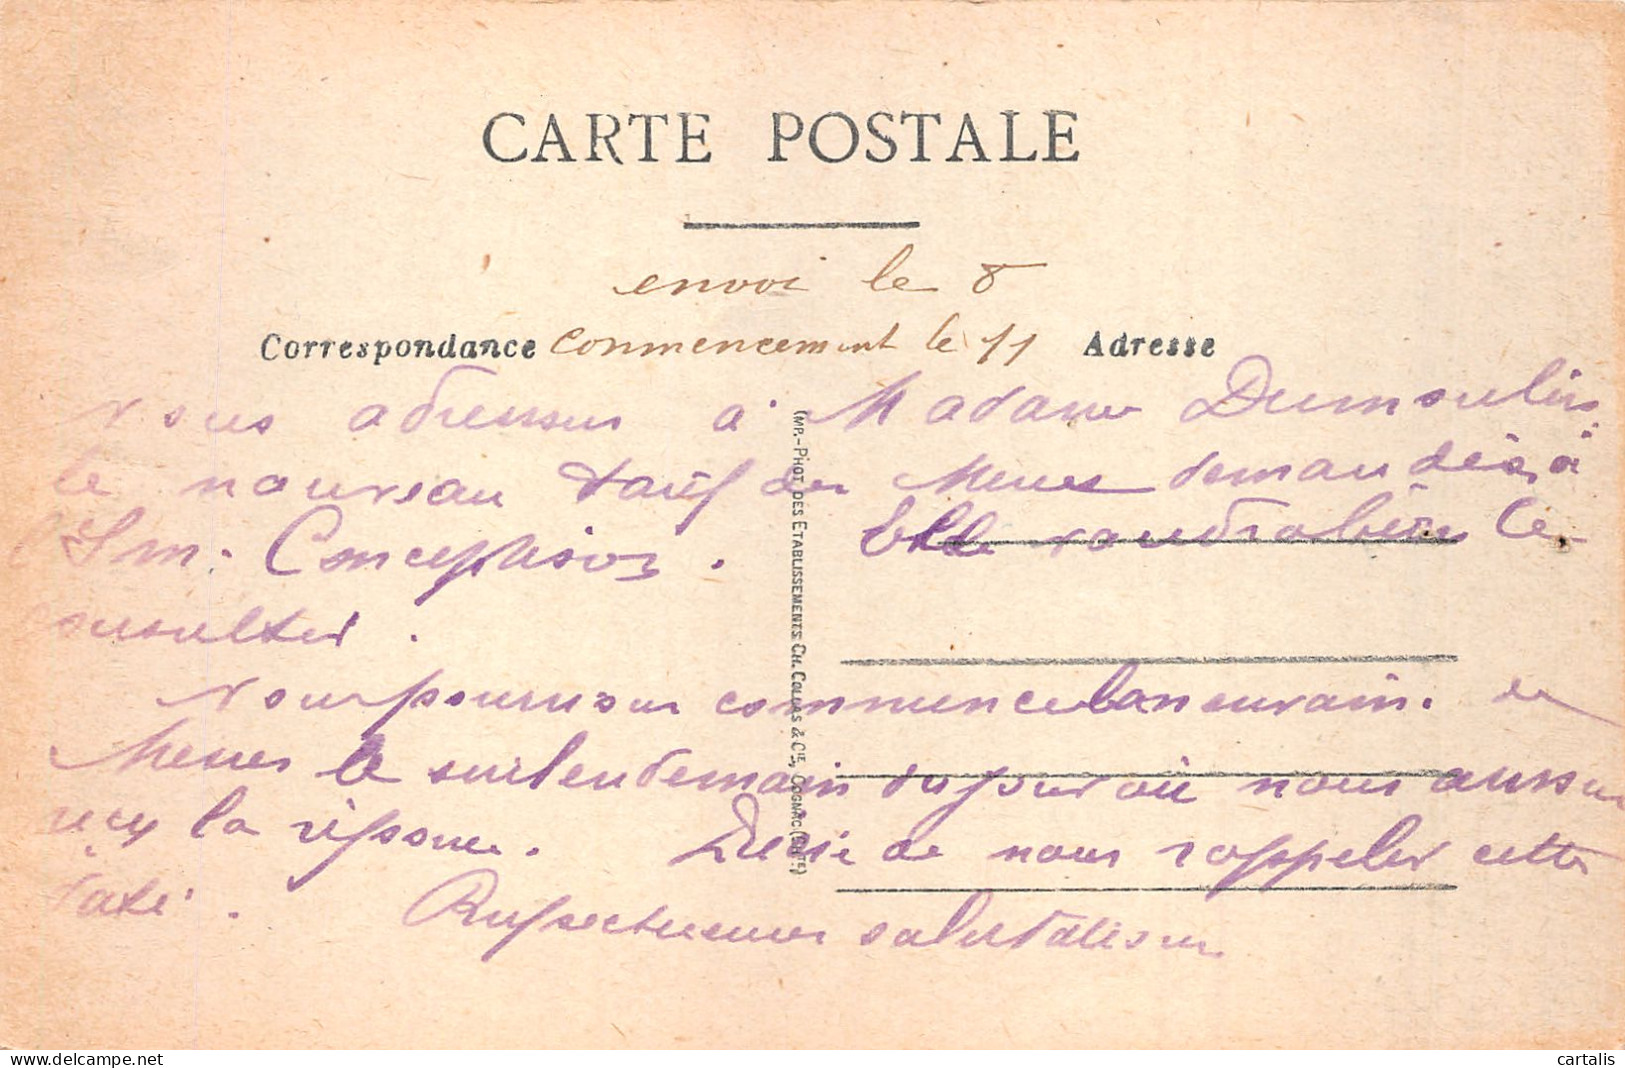 CARTE POSTALE
envoi le 8
Correspondance commencement le 11 Adresse
Nous adressons à Madame Dumoulins
le nouveau tarif des Messes demandées à
l'Imm. Conception. Elle voudra bien le
consulter.
Nous pourrions commencer la neuvaine de
Messes le surlendemain du jour où nous aurons
reçu la réponse. Prière de nous rappeler cette
date. Respectueuses salutations
(MP.-PHOT. DES ETABLISSEMENTS CH. COLLAS & Cie, COGNAC (CHTE)
www.delcampe.net
cartalis